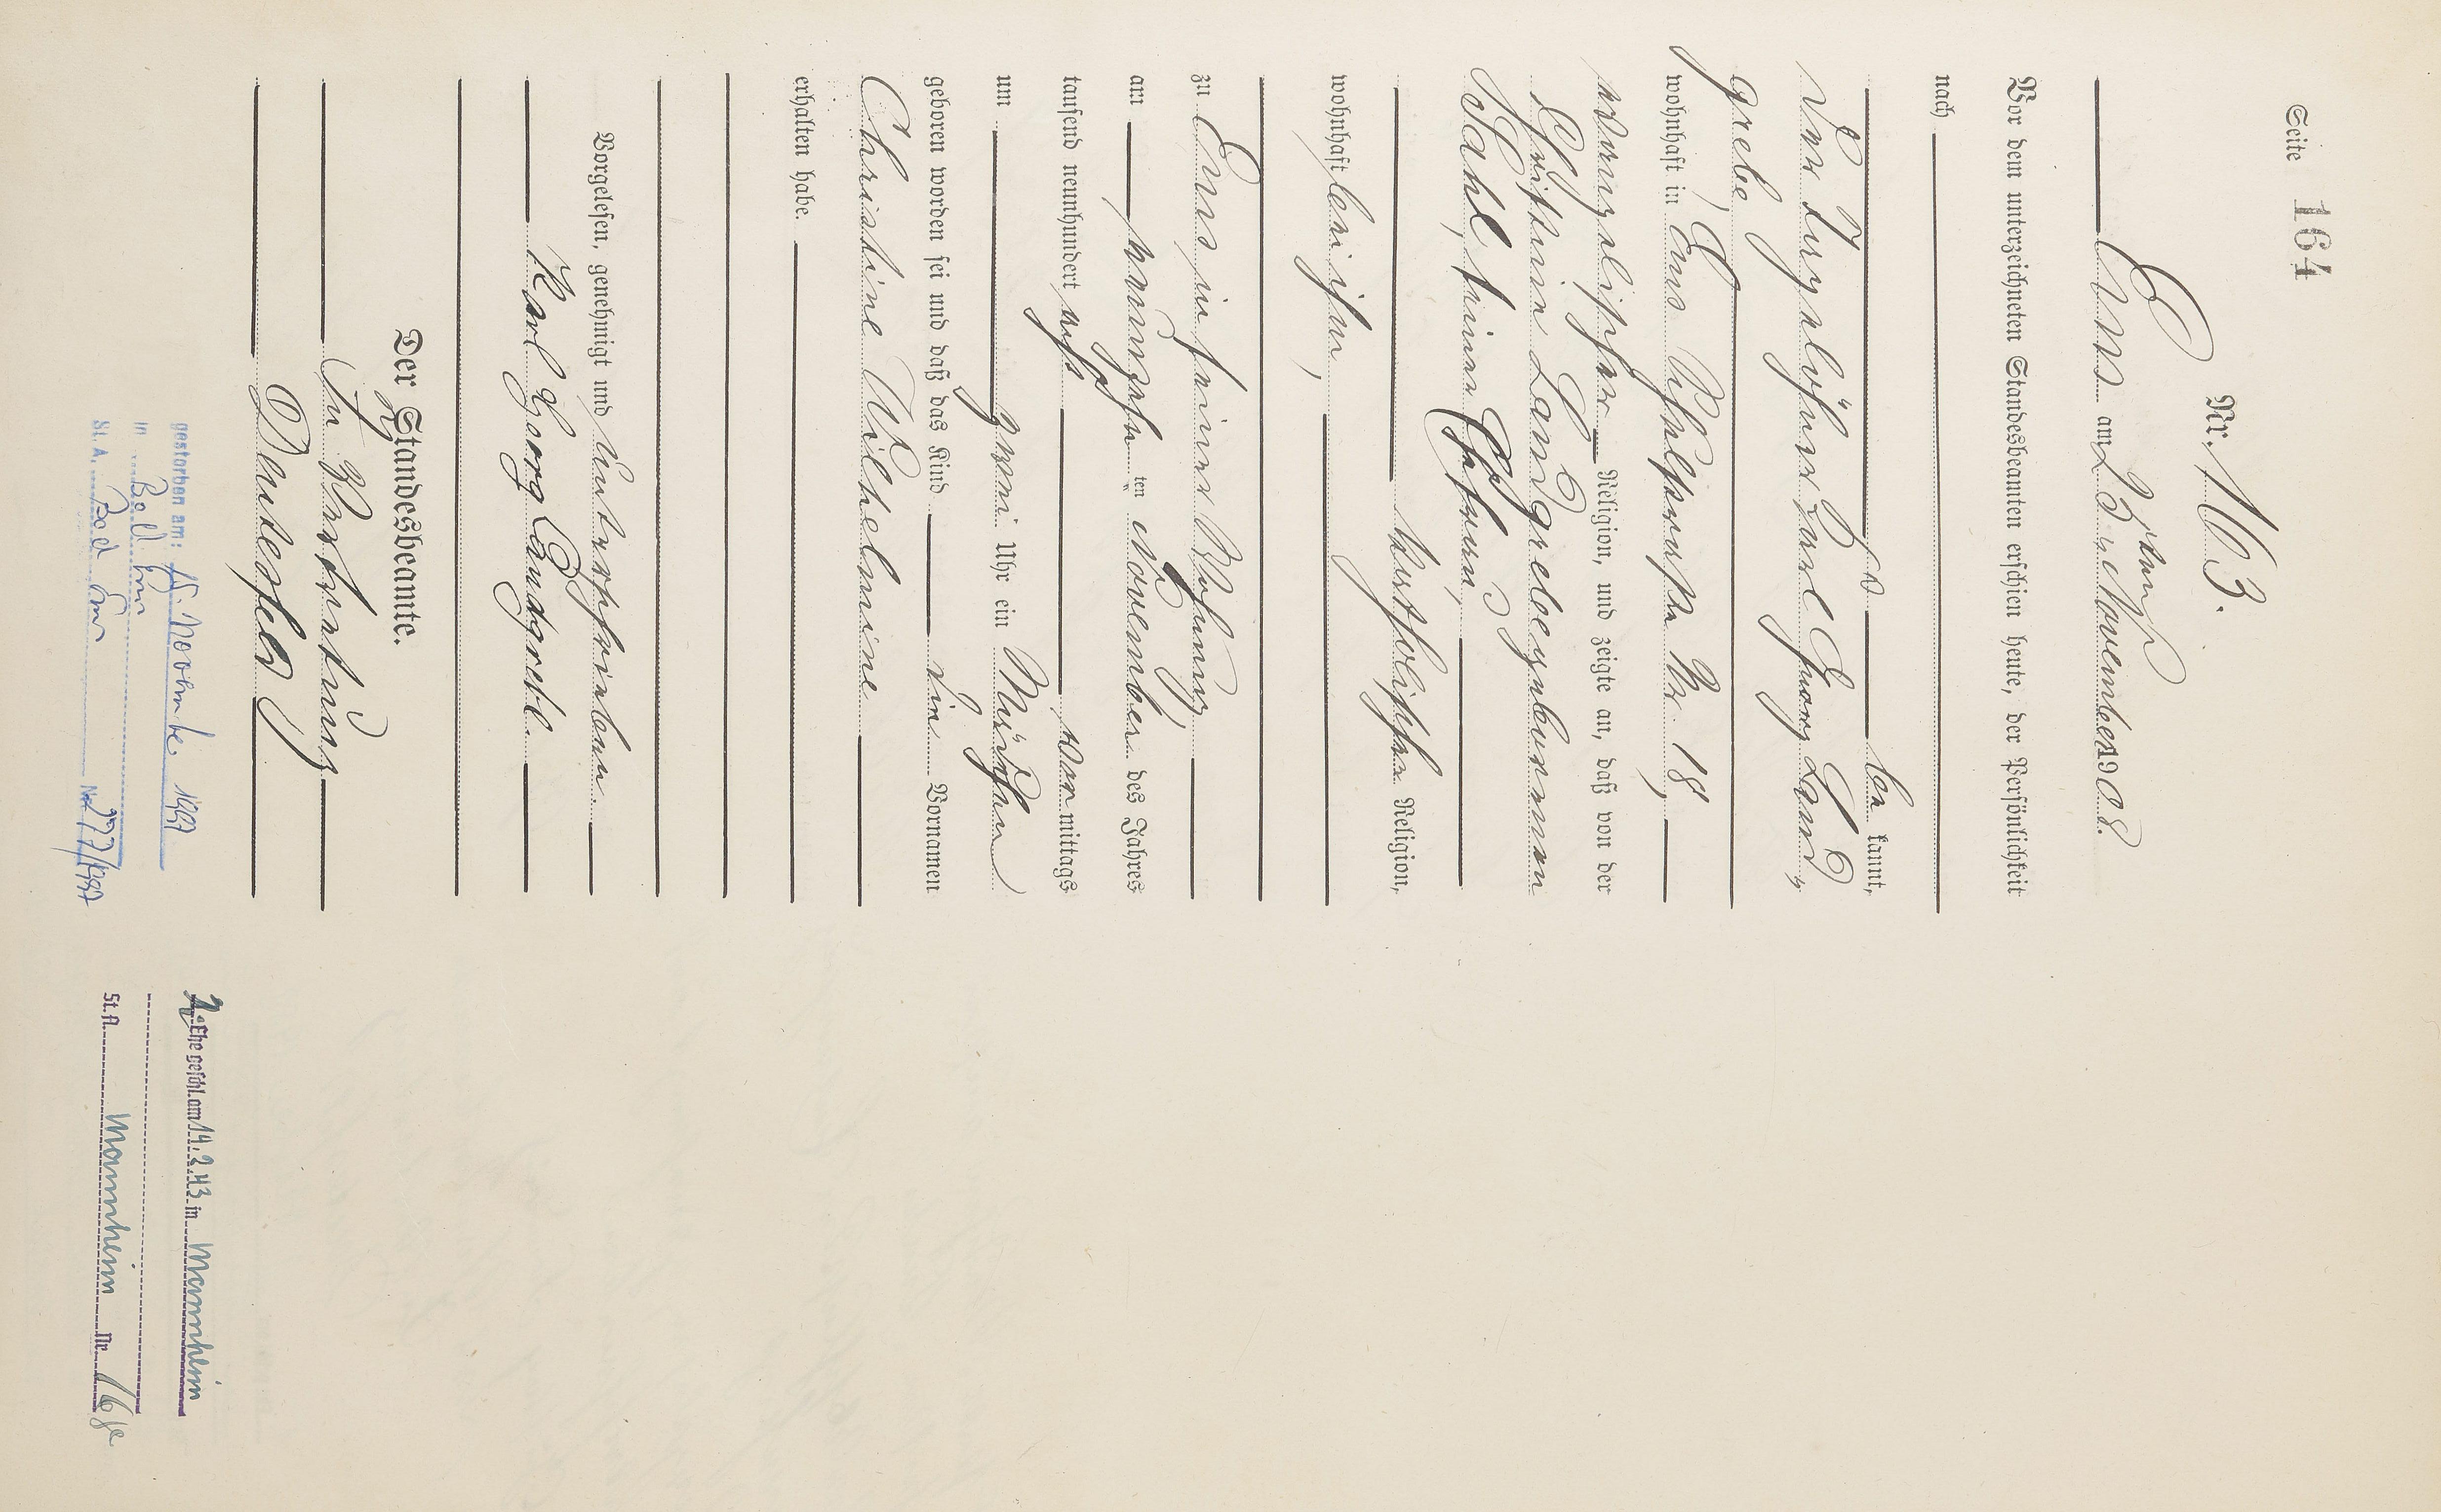 Seite 164
Nr. 163.
Ems am 23ten November 1908.
Vor dem unterzeichneten Standesbeamten erschien heute, der Persönlichkeit
nach
be kannt,
der Tagelöhner Karl Georg Land-
grebe
wohnhaft in Ems, Nr. 18,
evangelischer Religion, und zeigte an, daß von der
Christine Landgrebe geborenen
Stahl, seiner Ehefrau,
katholischer Religion,
wohnhaft bei ihm,
zu Ems in seiner Wohnung,
am neunzehn ten November des Jahres
tausend neunhundert acht Vor mittags
um zwei Uhr ein Mädchen
geboren worden sei und daß das Kind die Vornamen
Christine Wilhelmine
erhalten habe.
Vorgelesen, genehmigt und unterschrieben.
Karl Georg Landgrebe.
Der Standesbeamte.
In Vertretung
gestorben am: 15. November 1987
in Bad Ems
St. A. Bad Ems Nr. 277/1987
2. Ehe geschl. am 14.2.43 in Mannheim
St.A. Mannheim Nr. 168